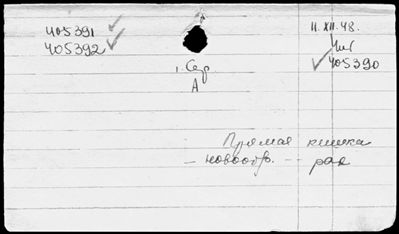 405391
405392
11. XII. 48.
405390
1. Сер.
А
Прямая кишка
— новообр. — рак